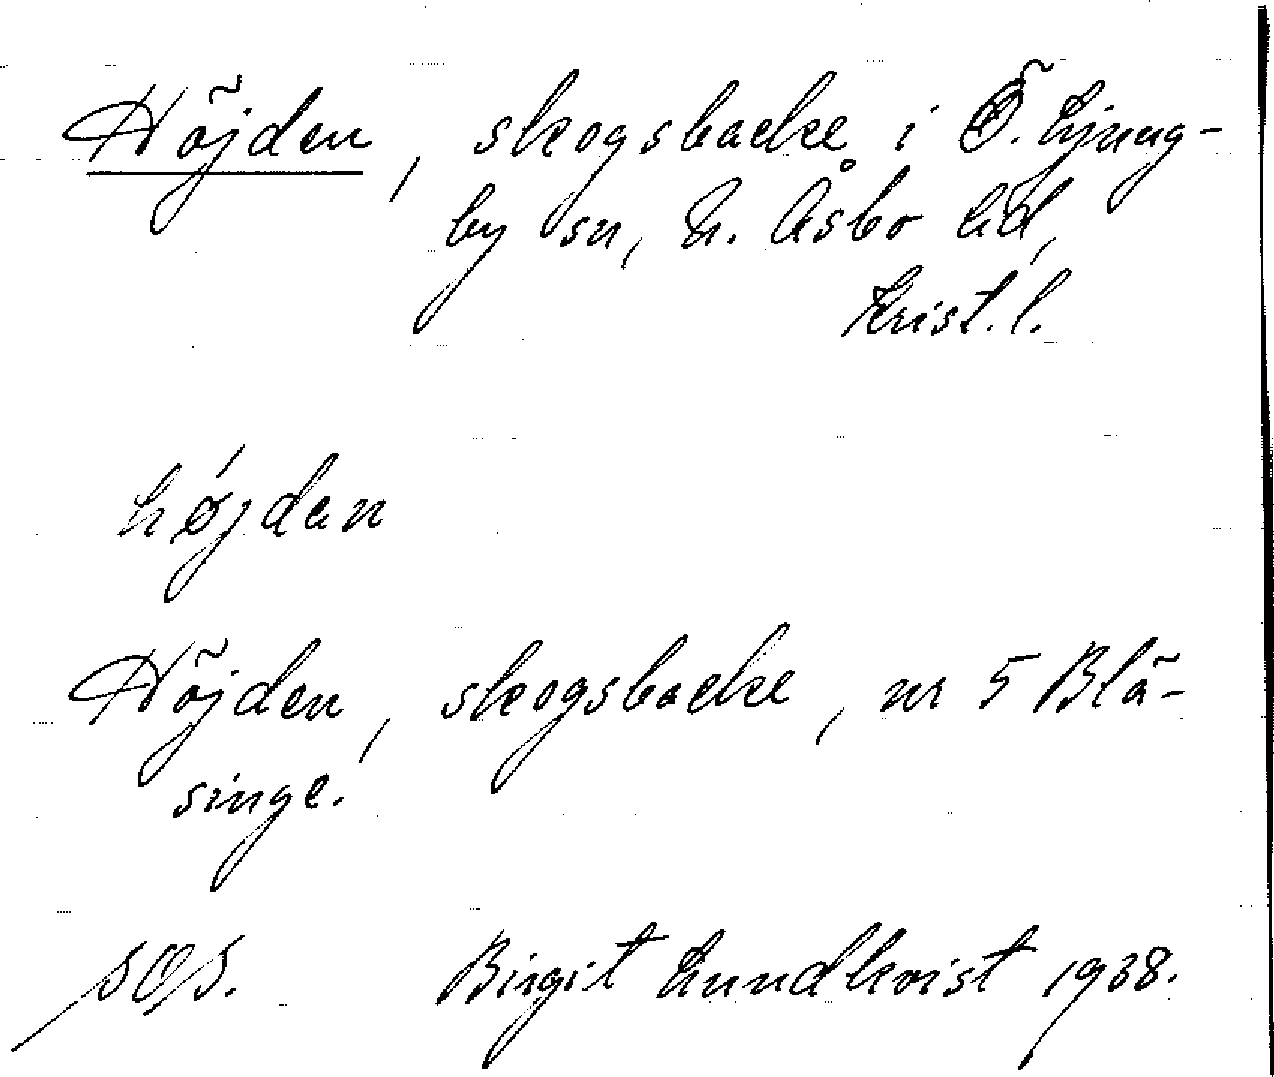 Höjden, skogsbacke i Ö. Ljung-
by sn, N. Åsbo hd,
Krist. l.
hǿjdən
Höjden, skogsbacke, nr 5 Blä-
singe.
Birgit Lundkvist 1938.